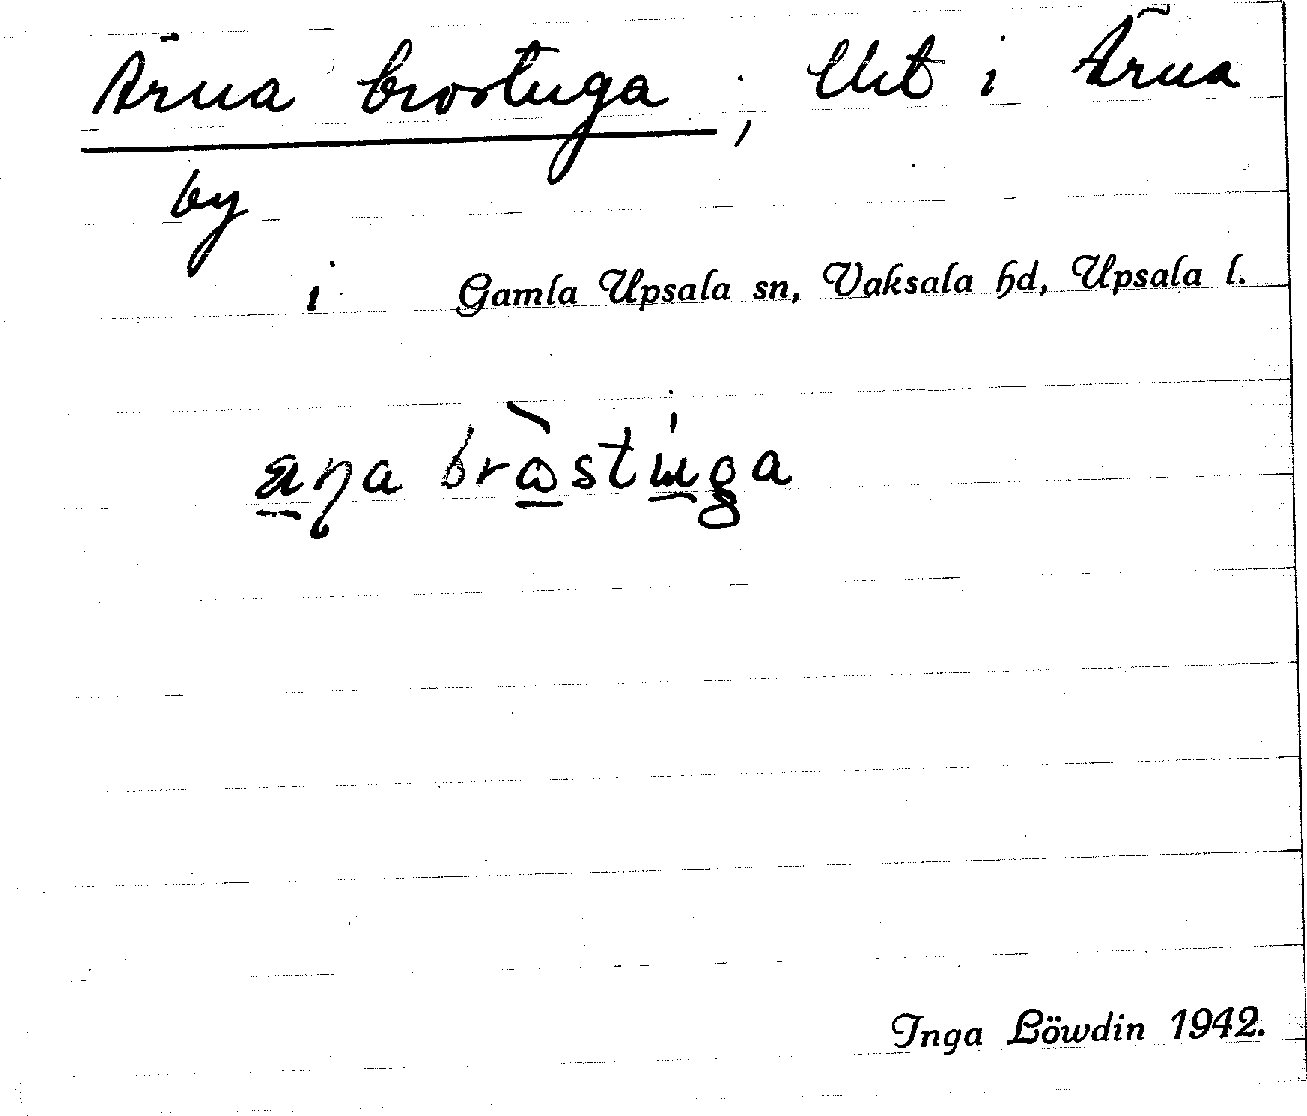 Ärna brostuga; Uåt i Ärna
by
i Gamla Upsala sn, Vaksala hd, Upsala l.
Inga Löwdin 1942.